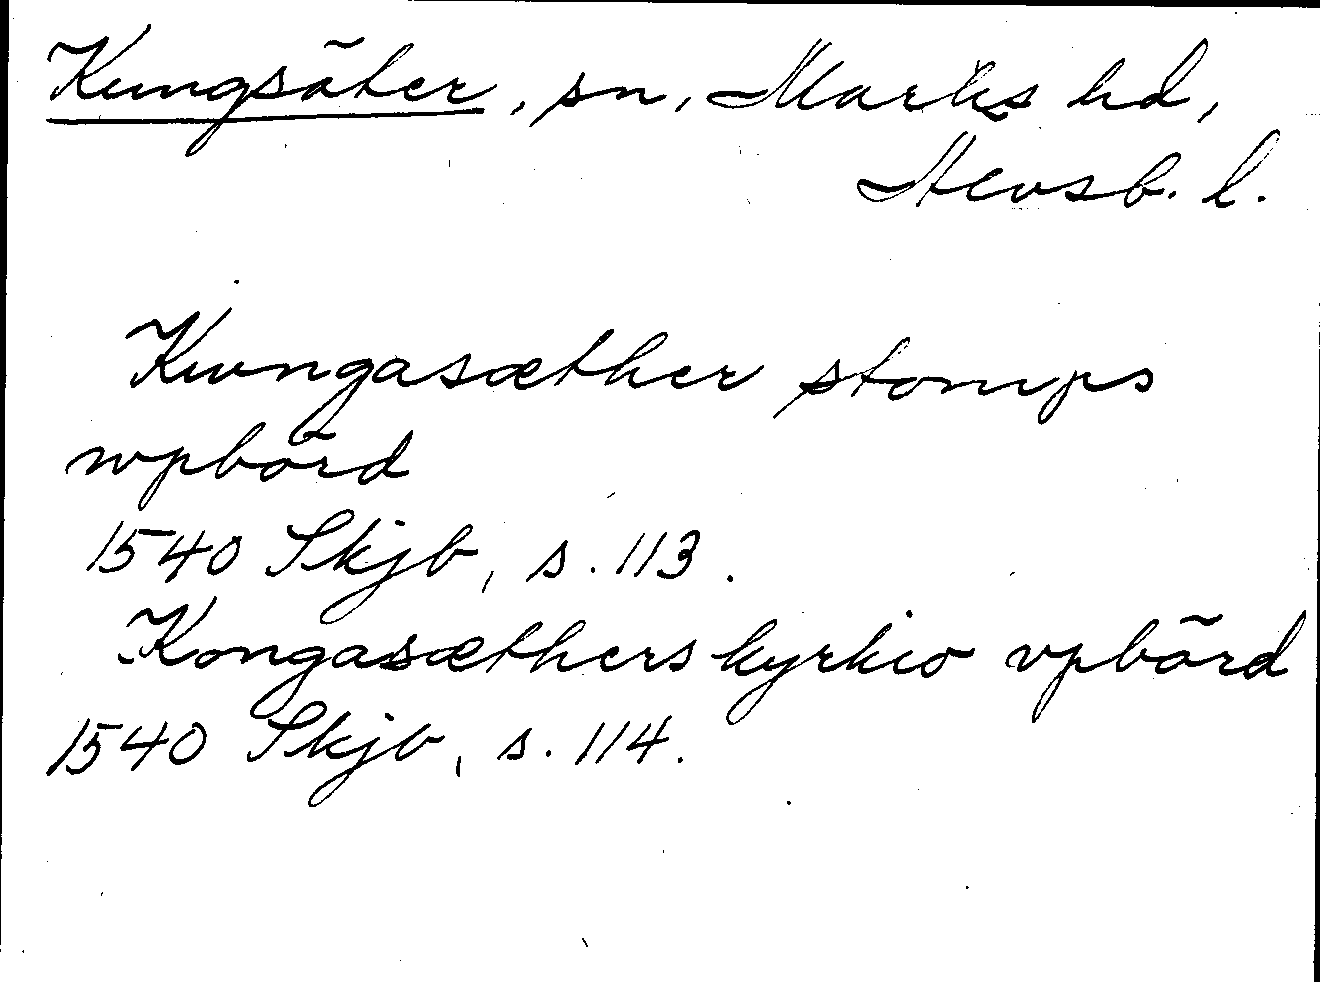 Kungsäter, sn, Marks hd,
Älvsb. l.
Kungasæther stomps
wpbörd
1540 Skjb, s. 113.
Kongasætherskyrkio vpbörd
1540 Skjb, s. 114.